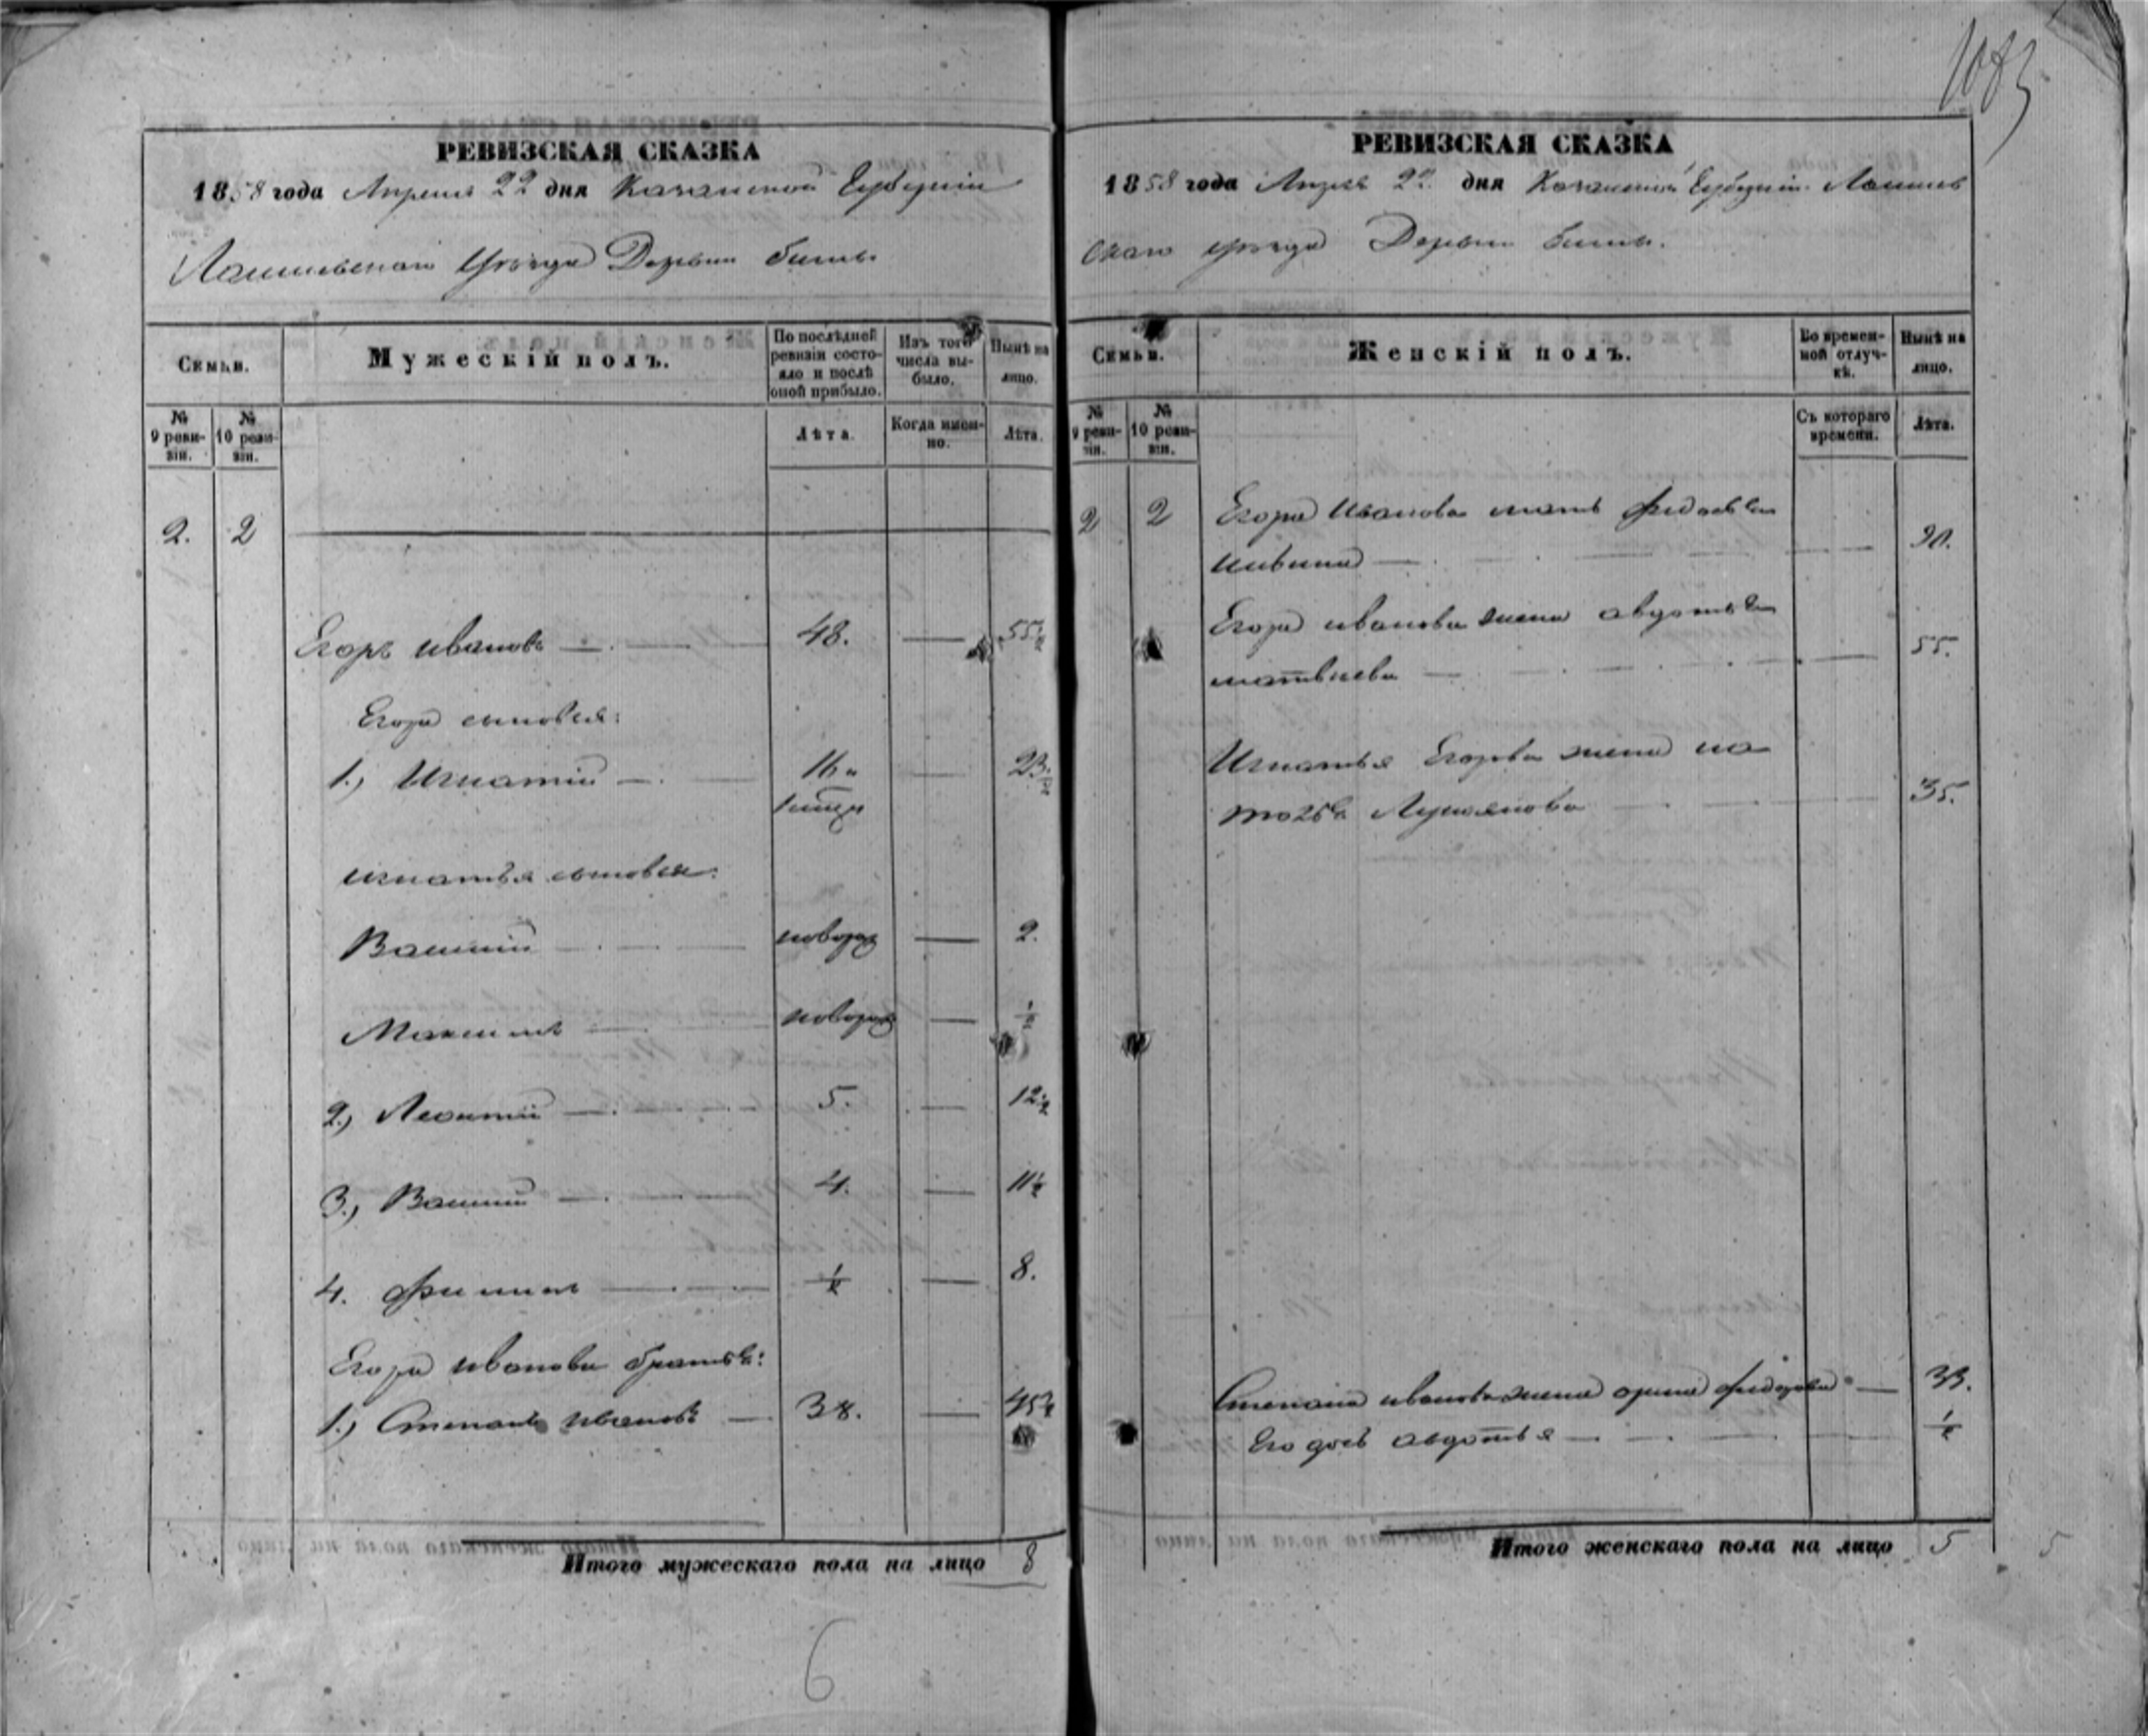 1083
РЕВИЗСКАЯ СКАЗКА
1858 года Апреля 22 дня Казанской Губернiи
Лаишевскаго Уѣзда Деревни
Семьи.
Мужескiй полъ.
По послѣдней ревизiи состояло и послѣ оной прибыло.
Изъ того числа выбыло.
Нынѣ на лицо.
№ 9 ревизiи.
№ 10 ревизiи.
Лѣта.
Когда именно.
Лѣта.
2. 2
Егоръ Ивановъ 48. 55 1/2
Егора сыновья:
1.) Игнатiй 16 23 1/2
Игнатья сыновья:
Василiй новорож 2.
Максимъ новорож 1/2
2.) Леонтiй 5. 12 1/2
3.) Василiй 4. 11 1/2
4. Филипъ 1/2 8.
Егора Иванова братья:
1.) Степанъ Ивановъ 38. 45 1/2
Итого мужескаго пола на лицо 8
6
РЕВИЗСКАЯ СКАЗКА
1858 года Апрель 22 дня Казанской Губернiи Лаишев
скаго уѣзда Деревни
Семьи.
Женскiй полъ.
Во временной отлучкѣ.
Нынѣ на лицо.
№ 9 ревизiи.
№ 10 ревизiи.
Съ котораго времени.
Лѣта.
2 2 Егора Иванова мать
90.
Егора Иванова жена авдотья
матвѣева 55.
Игнатья Егорова жена на
талья Лукоянова 35.
Степана иванова жена орина федорова 33.
Его дочь авдотья 1/2
Итого женскаго пола на лицо 5